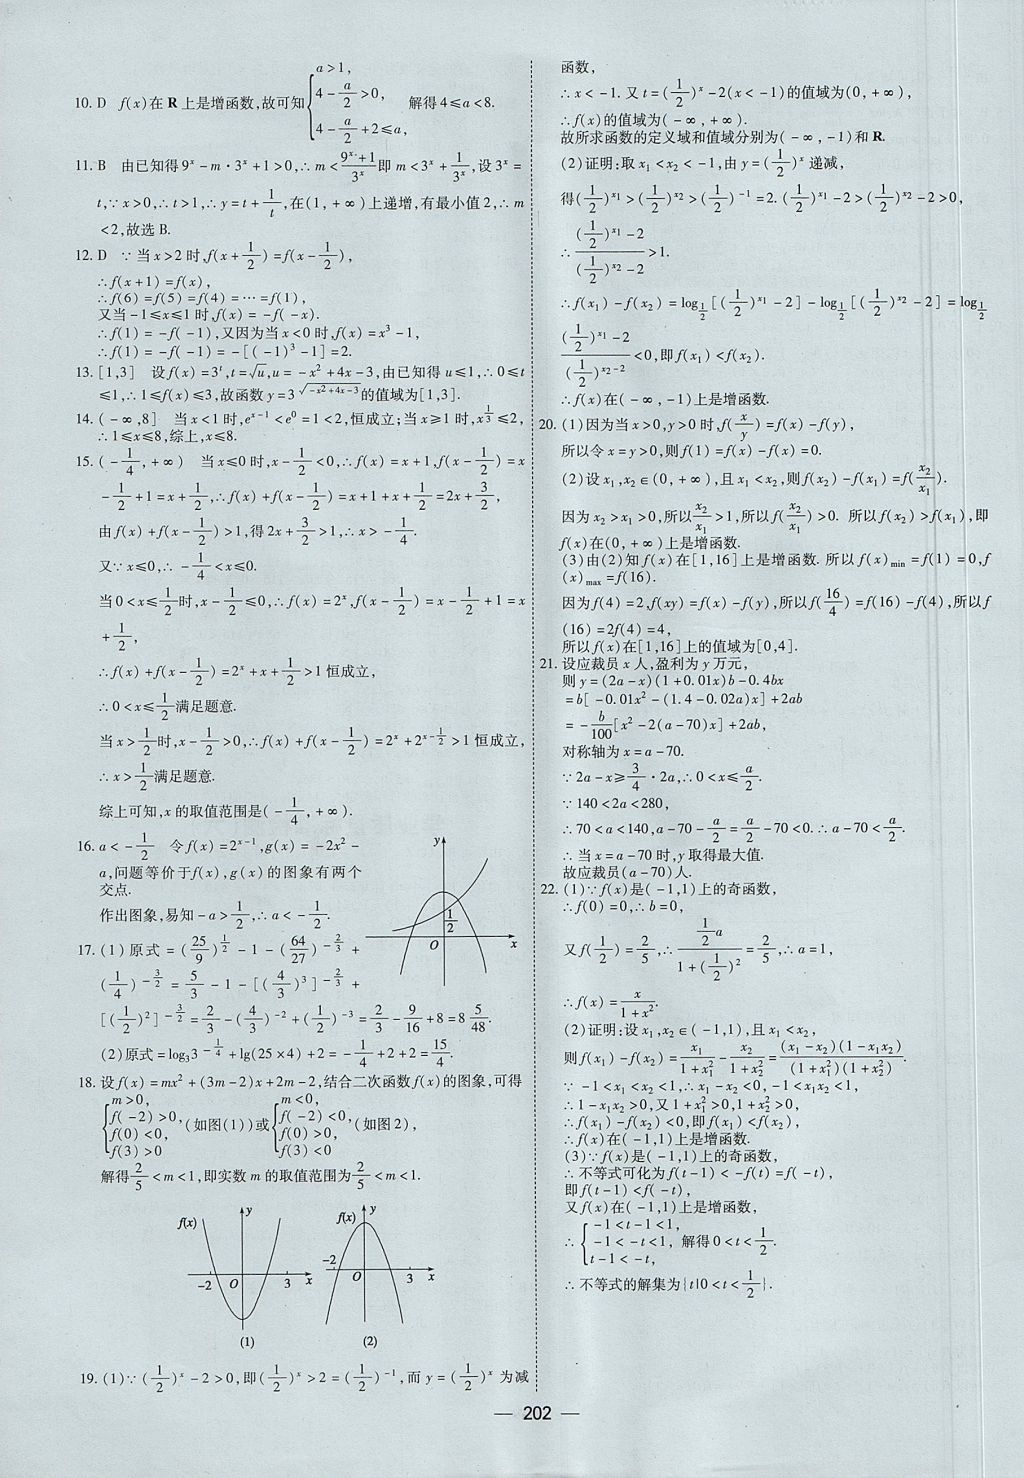 10. D　f(x)在 R 上是增函数,故可知{a>1, 4-a/2>0, 4-a/2+2≤a,　解得4≤a<8.
11. B　由已知得9^x-m·3^x+1>0,∴m<(9^x+1)/3^x即m<3^x+1/3^x,设3^x=
t,∵x>0,∴t>1,∴y=t+1/t,在(1,+∞)上递增,有最小值2,∴m
<2,故选B.
12. D　∵当x>2时,f(x+1/2)=f(x-1/2),
∴f(x+1)=f(x),
∴f(6)=f(5)=f(4)=…=f(1),
又当-1≤x≤1时,f(x)=-f(-x).
∴f(1)=-f(-1),又因为当x<0时,f(x)=x^3-1,
∴f(1)=-f(-1)=-[(-1)^3-1]=2.
13. [1,3]　设f(x)=3^t,t=√u,u=-x^2+4x-3,由已知得u≤1,∴0≤t
≤1,∴1≤f(x)≤3,故函数y=3^√(-x^2+4x-3)的值域为[1,3].
14. (-∞,8]　当x<1时,e^(x-1)<e^0=1<2,恒成立;当x≥1时,x^(1/3)≤2,
∴1≤x≤8,综上,x≤8.
15. (-1/4,+∞)　当x≤0时,x-1/2<0,∴f(x)=x+1,f(x-1/2)=x
-1/2+1=x+1/2,∴f(x)+f(x-1/2)=x+1+x+1/2=2x+3/2,
由f(x)+f(x-1/2)>1,得2x+3/2>1,∴x>-1/4.
又∵x≤0,∴-1/4<x≤0.
当0<x≤1/2时,x-1/2≤0,∴f(x)=2^x,f(x-1/2)=x-1/2+1=x
+1/2,
∴f(x)+f(x-1/2)=2^x+x+1/2>1恒成立,
∴0<x≤1/2满足题意.
当x>1/2时,x-1/2>0,∴f(x)+f(x-1/2)=2^x+2^(x-1/2)>1恒成立,
∴x>1/2满足题意.
综上可知,x的取值范围是(-1/4,+∞).
16. a<-1/2　令f(x)=2^(x-1),g(x)=-2x^2-
a,问题等价于f(x),g(x)的图象有两个
交点.
作出图象,易知-a>1/2,∴a<-1/2.
y
1/2
O
x
17. (1)原式=(25/9)^(1/2)-1-(64/27)^(-2/3)+
(1/4)^(-3/2)=5/3-1-[(4/3)^3]^(-2/3)+
[(1/2)^2]^(-3/2)=2/3-(4/3)^(-2)+(1/2)^(-3)=2/3-9/16+8=8 5/48.
(2)原式=log₃3^(-1/4)+lg(25×4)+2=-1/4+2+2=15/4.
18. 设f(x)=mx^2+(3m-2)x+2m-2,结合二次函数f(x)的图象,可得
{m>0, f(-2)>0, f(0)<0, f(3)>0 (如图(1))或{m<0, f(-2)<0, f(0)>0, f(3)<0 (如图2),
解得2/5<m<1,即实数m的取值范围为2/5<m<1.
f(x)
y
-2
O
3
x
(1)
f(x)
y
-2
O
3
x
(2)
19. (1)∵(1/2)^x-2>0,即(1/2)^x>2=(1/2)^(-1),而y=(1/2)^x为减
函数,
∴x<-1. 又t=(1/2)^x-2(x<-1)的值域为(0,+∞),
∴f(x)的值域为(-∞,+∞).
故所求函数的定义域和值域分别为(-∞,-1)和R.
(2)证明:取x₁<x₂<-1,由y=(1/2)^x递减,
得(1/2)^x₁>(1/2)^x₂>(1/2)^(-1)=2. (1/2)^x₁-2>(1/2)^x₂-2>0,
∴((1/2)^x₁-2)/((1/2)^x₂-2)>1.
∴f(x₁)-f(x₂)=log_(1/2)[(1/2)^x₁-2]-log_(1/2)[(1/2)^x₂-2]=log_(1/2)
((1/2)^x₁-2)/((1/2)^(x₂-2))<0,即f(x₁)<f(x₂).
∴f(x)在(-∞,-1)上是增函数.
20. (1)因为当x>0,y>0时,f(x/y)=f(x)-f(y),
所以令x=y>0,则f(1)=f(x)-f(x)=0.
(2)设x₁,x₂∈(0,+∞),且x₁<x₂,则f(x₂)-f(x₁)=f(x₂/x₁).
因为x₂>x₁>0,所以x₂/x₁>1,所以f(x₂/x₁)>0. 所以f(x₂)>f(x₁),即
f(x)在(0,+∞)上是增函数.
(3)由(2)知f(x)在[1,16]上是增函数. 所以f(x)min=f(1)=0,f
(x)max=f(16).
因为f(4)=2,f(xy)=f(x)-f(y),所以f(16/4)=f(16)-f(4),所以f
(16)=2f(4)=4,
所以f(x)在[1,16]上的值域为[0,4].
21. 设应裁员x人,盈利为y万元,
则y=(2a-x)(1+0.01x)b-0.4bx
=b[-0.01x^2-(1.4-0.02a)x]+2ab
=-b/100[x^2-2(a-70)x]+2ab,
对称轴为x=a-70.
∵2a-x≥3/4·2a,∴0<x≤a/2.
∵140<2a<280,
∴70<a<140,a-70-a/2=a/2-70<0.∴a-70<a/2.
∴当x=a-70时,y取得最大值.
故应裁员(a-70)人.
22. (1)∵f(x)是(-1,1)上的奇函数,
∴f(0)=0,∴b=0,
又f(1/2)=2/5,∴(1/2 a)/(1+(1/2)^2)=2/5,∴a=1,
∴f(x)=x/(1+x^2).
(2)证明:设x₁,x₂∈(-1,1),且x₁<x₂,
则f(x₁)-f(x₂)=x₁/(1+x₁^2)-x₂/(1+x₂^2)=(x₁-x₂)(1-x₁x₂)/((1+x₁^2)(1+x₂^2)).
∵-1<x₁<x₂<1,∴x₁-x₂<0,-1<x₁x₂<1,
∴1-x₁x₂>0,又1+x₁^2>0,1+x₂^2>0,
∴f(x₁)-f(x₂)<0,即f(x₁)<f(x₂),
∴f(x)在(-1,1)上是增函数.
(3)∵f(x)是(-1,1)上的奇函数,
∴不等式可化为f(t-1)<-f(t)=f(-t),
即f(t-1)<f(-t),
又f(x)在(-1,1)上是增函数,
∴{-1<t-1<1, -1<-t<1, t-1<-t,　解得0<t<1/2.
∴不等式的解集为{t|0<t<1/2}.
— 202 —